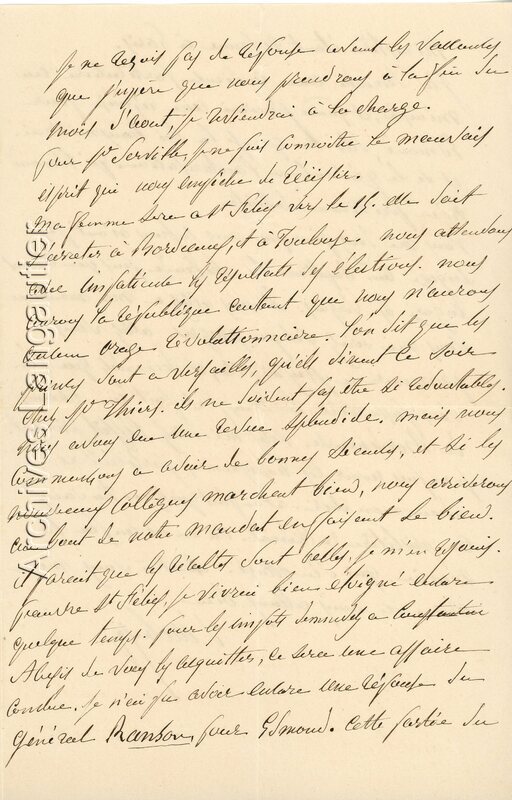 Je ne reçois pas de réponse avant les vacances
que j'espère que nous prendrons à la fin du
mois d'aout, je reviendrai à la charge.
pour Mr Serville, je ne puis connoitre le mauvais
esprit qui nous empêche de réussir.
ma femme sera a St Félix vers le 15. elle doit
s'arreter à Bordeaux, et à Toulouse. nous attendons
avec impatience les résultats des élections. nous
aurons la république autant que nous n'aurons
aucun orage révolutionnaire. l'on dit que les
princes sont a versailles, qu'ils dinent ce soir
chez Mr Thiers. ils ne doivent pas être si redoutables.
nous avons eu une revue splendide. mais nous
commençons a avoir de bonnes séances, et si les
nouveaux collègues marchent bien, nous arriverons
au bout de notre mandat en faisant le bien.
il parait que les récoltes sont belles, je m'en réjouis.
pauvre St Félix, je vivrai bien éloigné encore
quelque temps. pour les impots demandés a Constantin
Abizis de vous les acquitter, ce sera une affaire
conclue. je n'ai pu avoir encore une réponse du
Général Ranson, pour Edmond. cette partie du
Archives Largautier